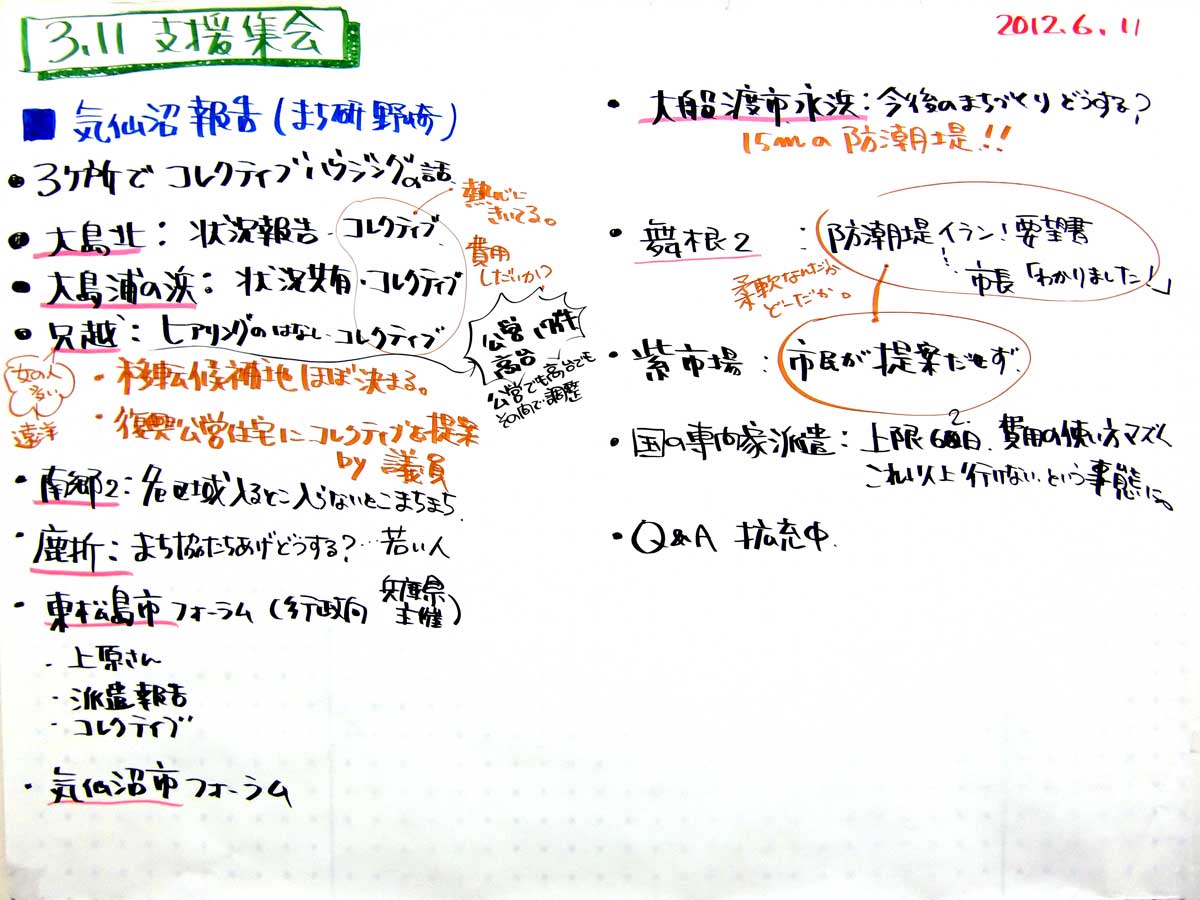 3.11 支援集会
2012.6.11
■ 気仙沼 報告 (まち研 野崎)
• 3ヶ所で コレクティブハウジングの話
• 大島北: 状況報告・コレクティブ
熱心に
きいてる。
• 大島浦の浜: 状況共有・コレクティブ
費用
しだいか?
• 只越: ヒアリングのはなし・コレクティブ
公営
高台
公営でも高台でも
その向で調整
女の人
多い
遠洋
・移転候補地ほぼ決まる。
・復興公営住宅にコレクティブを提案
by 議員
・南郷2: 危区域入るとこ入らないとこまちまち
・鹿折: まち協たちあげどうする?…若い人
・東松島市フォーラム (行政向 兵庫県
主催)
・上原さん
・派遣報告
・コレクティブ
・気仙沼市フォーラム
• 大船渡市永浜: 今後のまちづくりどうする?
15mの防潮堤!!
• 舞根2 : 防潮堤イラン! 要望書
市長「わかりました!」
柔軟なんだか
どーだか。
• 紫市場: 市民が提案だせず
• 国の専門家派遣: 上限 2日. 費用の使い方マズく
これ以上行けない.という事態に。
• Q&A 拡充中.